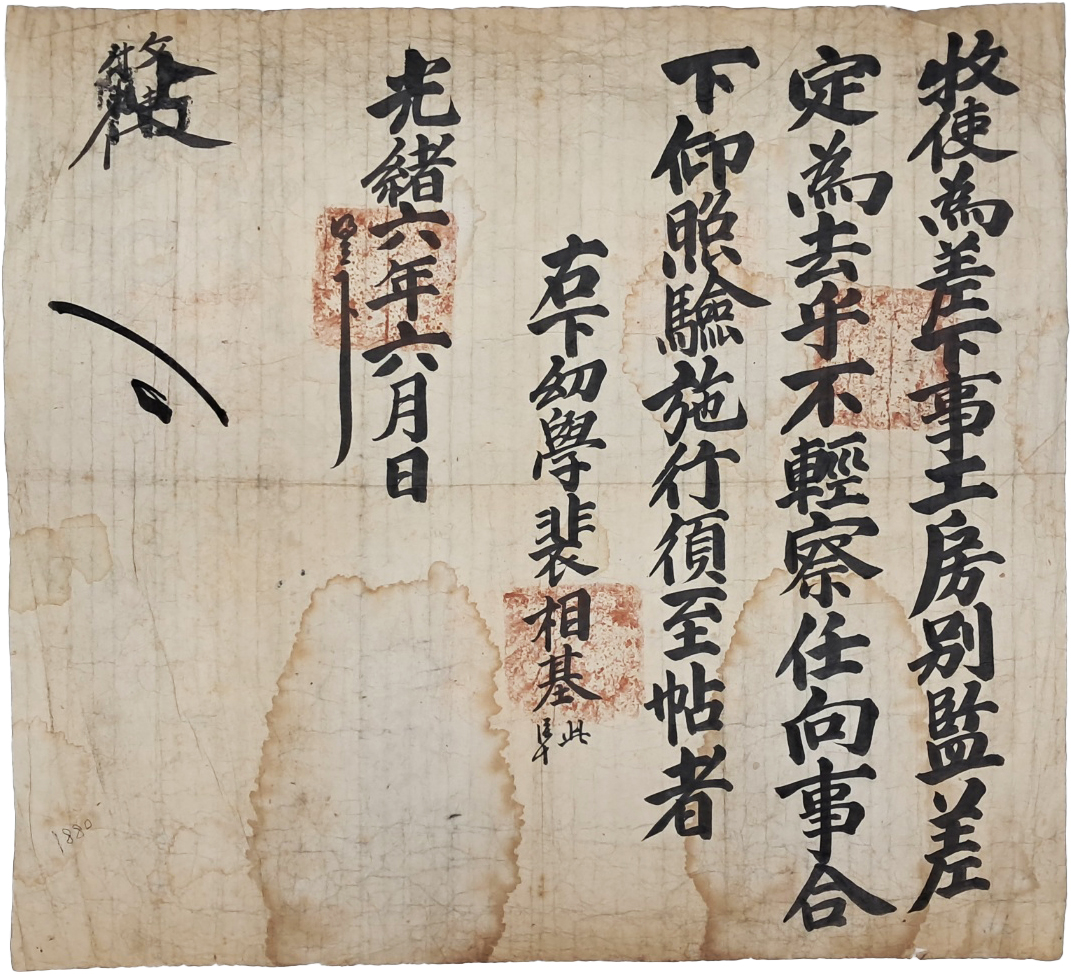 牧使為差下事工房別監差
定為去乎不輕察任向事合
下仰照驗施行須至帖者
右下幼學裴相基
此
準
光緖六年六月日
1880